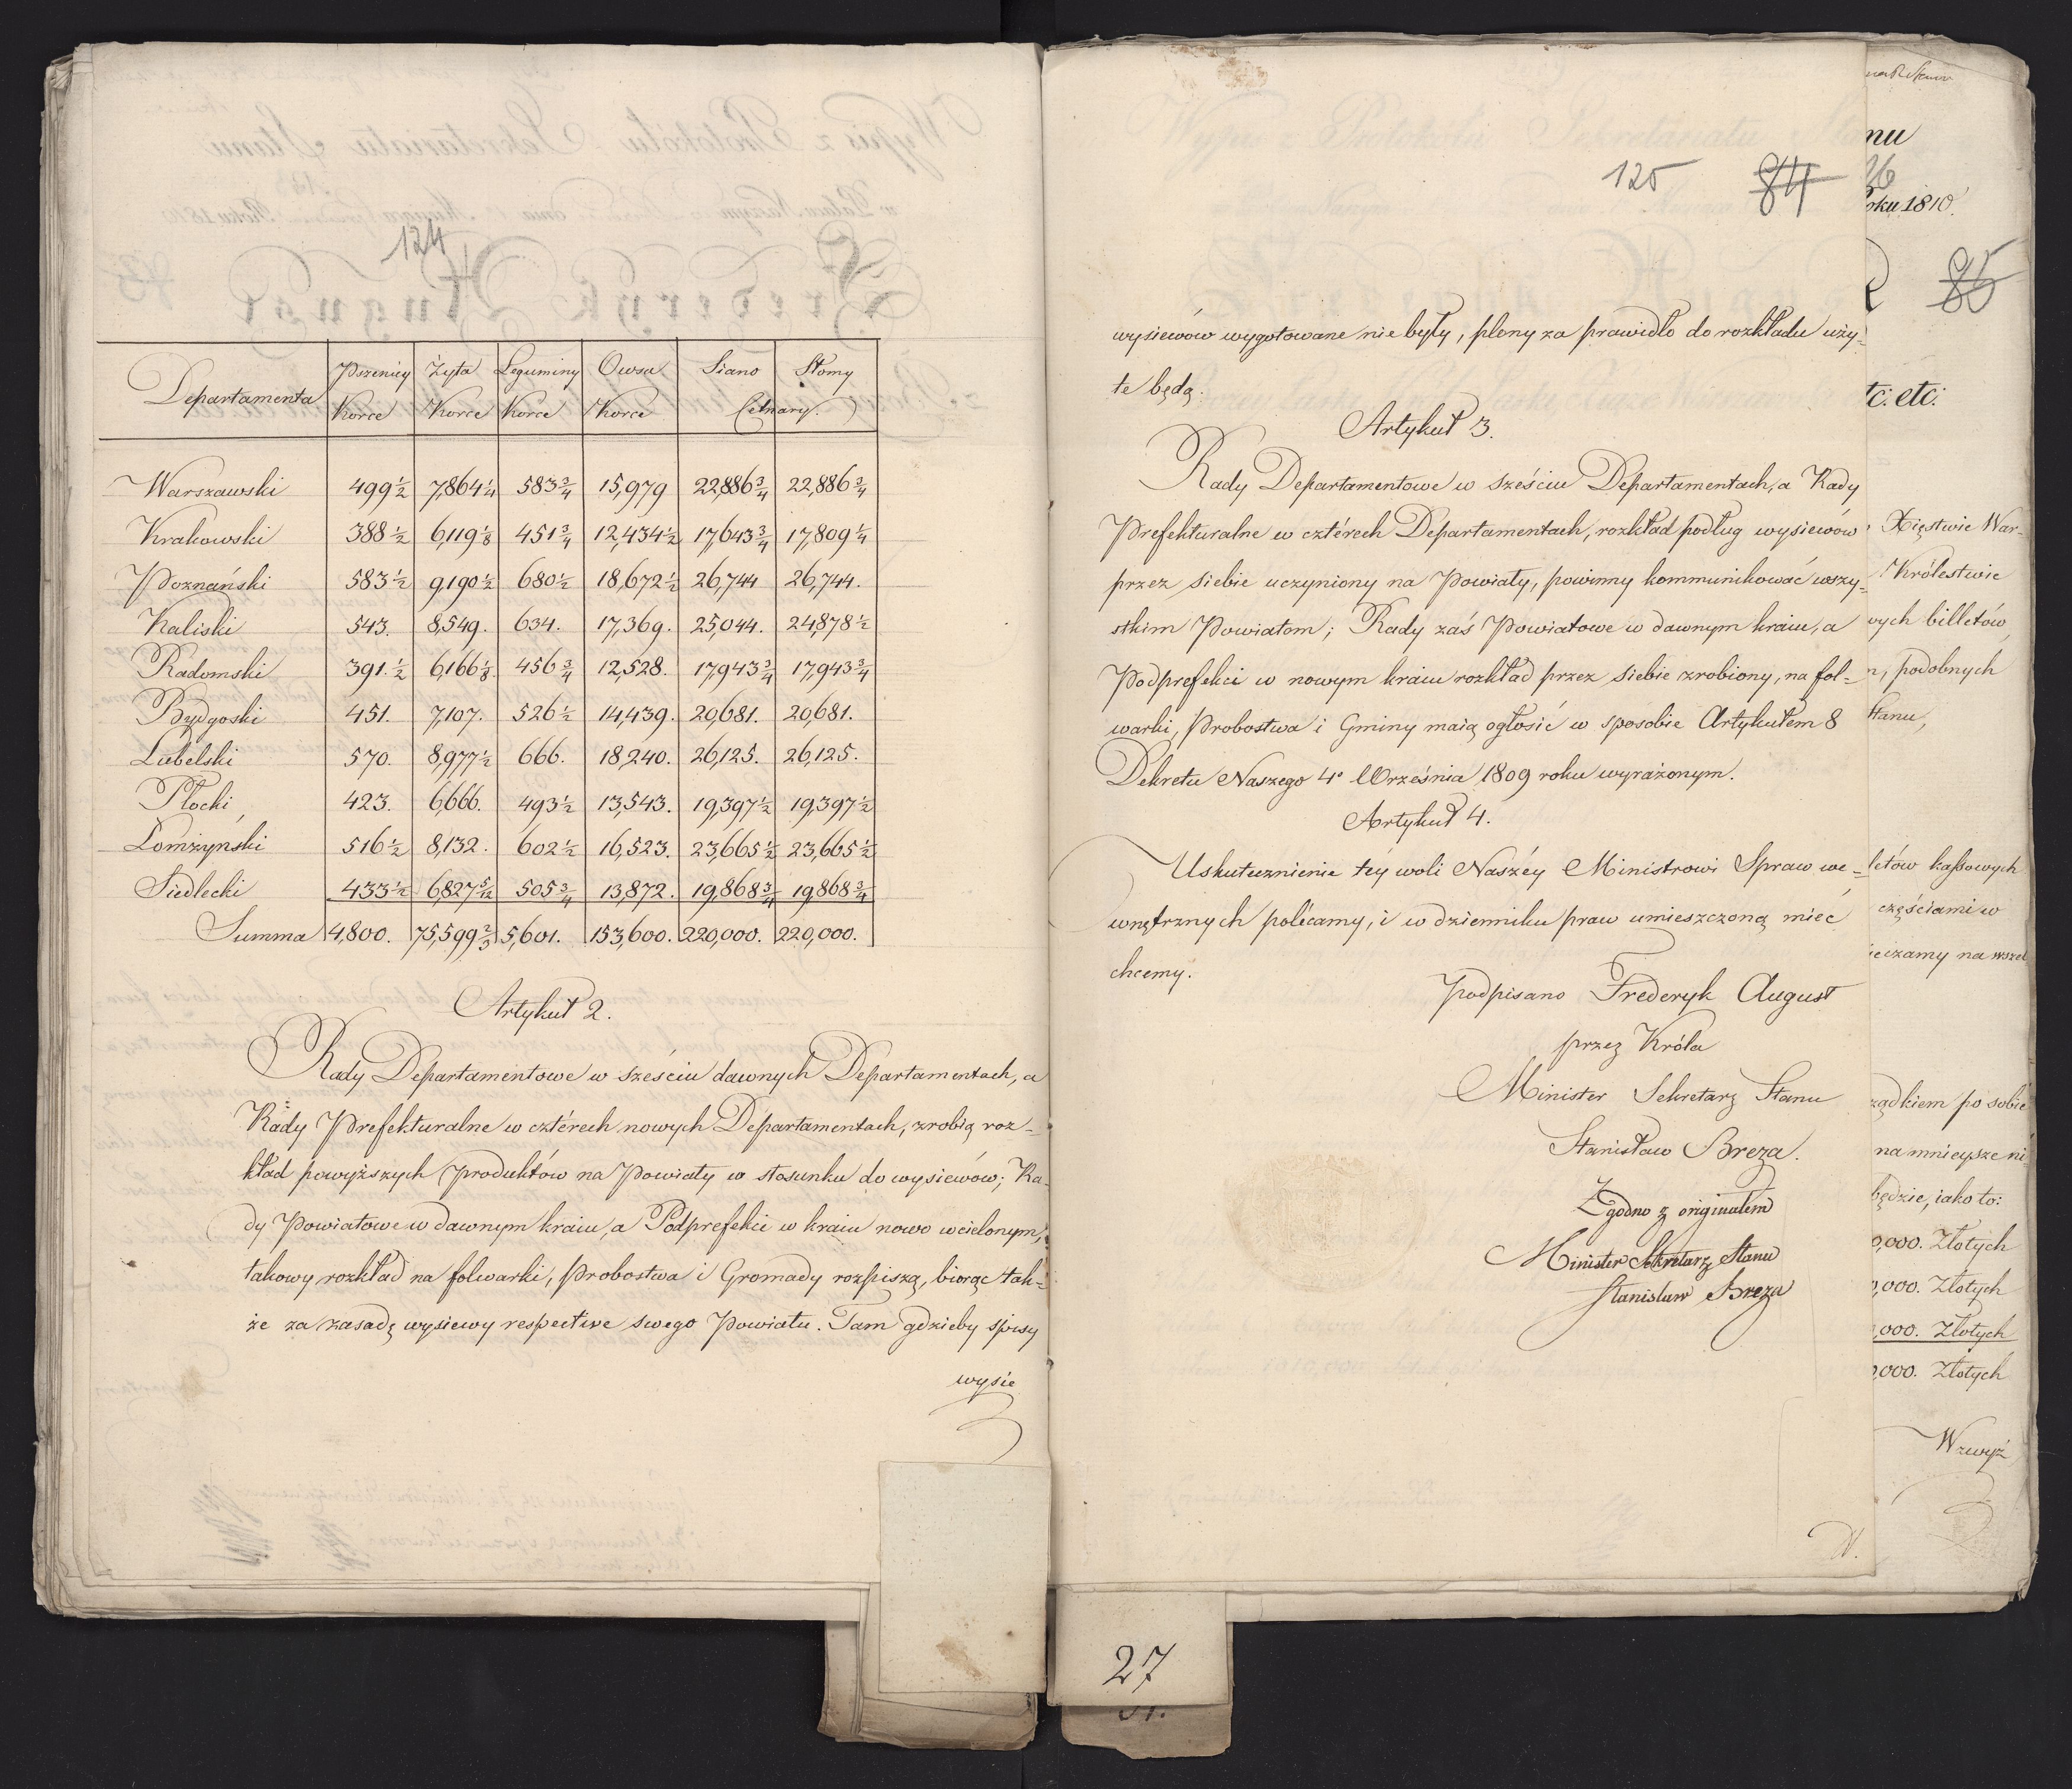 124
Departamenta | Pszenicy Korce | Żyta Korce | Leguminy Korce | Owsa Korce | Siano | Słomy
Cetnary.
Warszawski 499½ 7,864¼ 583¾ 15,979 22,886¾ 22,886¾
Krakowski 388½ 6,119⅛ 451¾ 12,434½ 17,643¾ 17,809¼
Poznański 583½ 9,190½ 680½ 18,672½ 26,744 26,744.
Kaliski 543. 8,549. 634. 17,369. 25,044. 24,878½
Radomski 391.½ 6,166⅛ 456¾ 12,528. 17,943¾ 17,943¾
Bydgoski 451. 7,107. 526½ 14,439. 20,681. 20,681.
Lubelski 570. 8,977½ 666. 18,240. 26,125. 26,125.
Płocki 423. 6,666. 493½ 13,543. 19,397½ 19,397½
Łomżyński 516½ 8,132. 602½ 16,523. 23,665½ 23,665½
Siedlecki 433½ 6,827 5/12 505¾ 13,872. 19,868¾ 19,868¾
Summa 4,800. 75,599⅔ 5,601. 153,600. 220,000. 220,000.
Artykuł 2.
Rady Departamentowe w sześciu dawnych Departamentach, a
Rady Prefekturalne w cztérech nowych Departamentach, zrobią roz-
kład powyższych produktów na Powiaty w stosunku do wysiewów; Ra-
dy Powiatowe w dawnym kraiu, a Podprefekci w kraiu nowo wcielonym,
takowy rozkład na folwarki, probostwa i Gromady rozpiszą, biorąc tak-
że za zasadę wysiewy respective swego Powiatu. Tam gdzieby spisy
wysie
125 84
wysiewów wygotowane nie były, plony za prawidło do rozkładu uży-
te będą.
Artykuł 3.
Rady Departamentowe w sześciu Departamentach, a Rady
Prefekturalne w cztérech Departamentach, rozkład podług wysiewów
przez siebie uczyniony na Powiaty, powinny kommunikować wszy-
stkim Powiatom; Rady zaś Powiatowe w dawnym kraiu, a
Podprefekci w nowym kraiu rozkład przez siebie zrobiony, na fol-
warki, Probostwa i Gminy maią ogłosić w sposobie Artykułem 8
Dekretu Naszego 4º Września 1809 roku wyrażonym.
Artykuł 4.
Uskutecznienie téy woli Naszéy Ministrowi Spraw we-
wnętrznych polécamy, i w dzienniku praw umieszczoną mieć
chcemy.
Podpisano Frederyk August
przez Króla
Minister Sekretarz Stanu
Stanisław Breza.
Zgodno z originałem
Minister Sekretarz Stanu
Stanisław Breza
27
nu
oku 1810.
85
tc: etc:
Xięstwie War-
Królestwie
wych billetów
n, podobnych
Stanu,
letów kassowych
częściami w
ieczamy na wszel
ządkiem po sobie
na mnieysze ni
będzie, iako to:
0,000. Złotych
0,000. Złotych
,000. Złotych
0,000. Złotych
Wzwyż